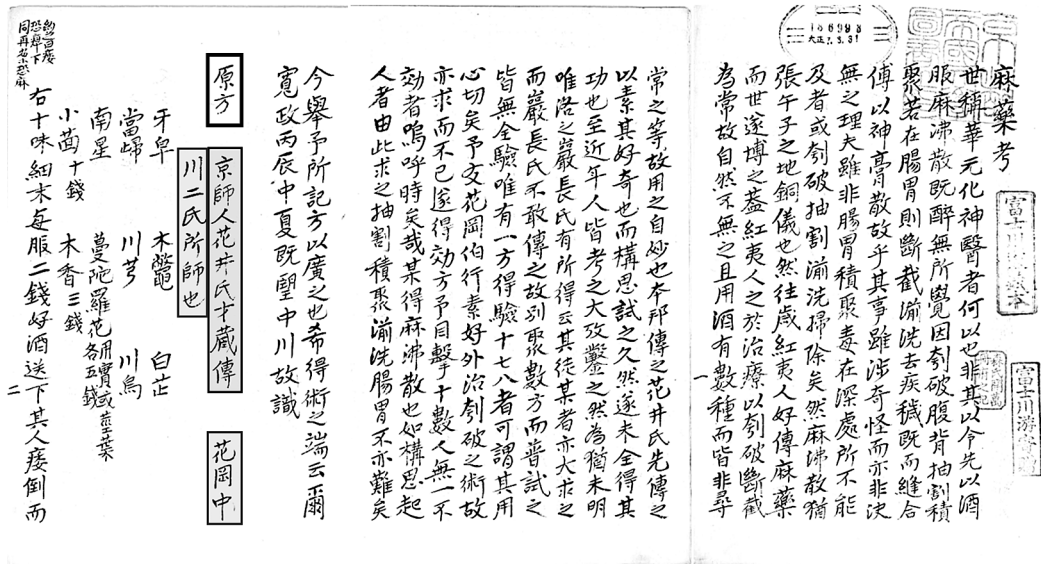 麻藥考
世稱華元化神醫者何以也非其以令先以酒
服麻沸散既醉無所覺因刳破腹背抽割積
聚若在腸胃則斷截湔洗去疾穢既而縫合
傅以神膏散故乎其事雖涉奇怪而亦非決
無之理夫雖非腸胃積聚毒在深處所不能
及者或刳破抽割湔洗掃除矣然麻沸散猶
張午子之地銅儀也然往歲紅夷人好傳麻藥
而世遂博之蓋紅夷人之於治療以刳破斷截
為常故自然不無之且用酒有數種而皆非尋
一
常之等故用之自妙也本邦傳之花井氏先傳之
以素其好奇也而構思試之久然遂未全得其
功也至近年人皆考之大攷鑿之然為猶未明
唯洛之巖長氏有所得云其徒某者亦大求之
而巖長氏不敢傳之故別聚數方而普試之
皆無全驗唯有一方得驗十七八者可謂其用
心切矣予友花岡伯行素好外治刳破之術故
亦求而不已遂得効方予目擊十數人無一不
効者嗚呼時矣哉某得麻沸散也如構思起
人者由此求之抽割積聚湔洗腸胃不亦難矣
今舉予所記方以廣之也希得術之端云爾
寬政丙辰中夏既望中川故識
原方 京師人花井氏才蔵傳 花岡中
川二氏所師也
牙皁 木鱉 白芷
當歸 川芎 川烏
南星 蔓陀羅花用實或莖葉各五錢
小茴十錢 木香三錢
右十味細末每服二錢好酒送下其人痿倒而
二
大正7.3.31
富士川游